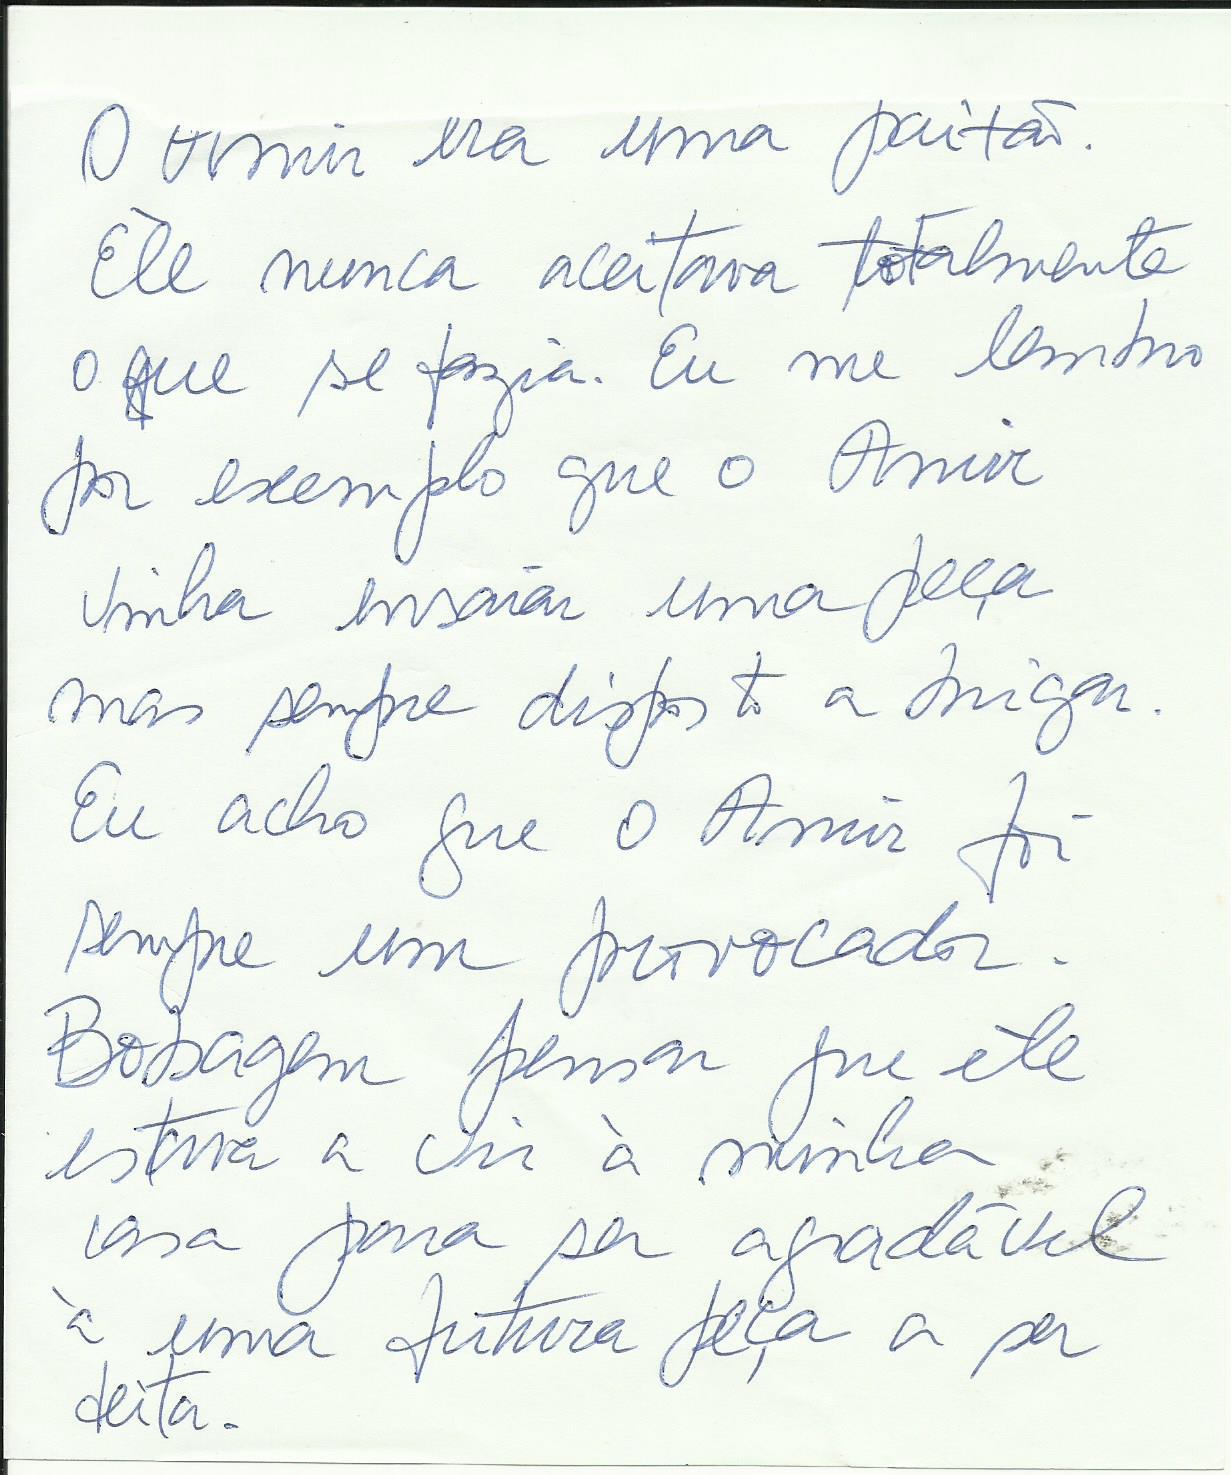 O Amir era uma paixão.
Êle nunca aceitava totalmente
o que se fazia. Eu me lembro
por exemplo que o Amir
vinha ensaiar uma peça
mas sempre disposto a brigar.
Eu acho que o Amir foi
sempre um provocador.
Bobagem pensar que êle
estava a vir à minha
casa para ser agradável
à uma futura peça a ser
feita.